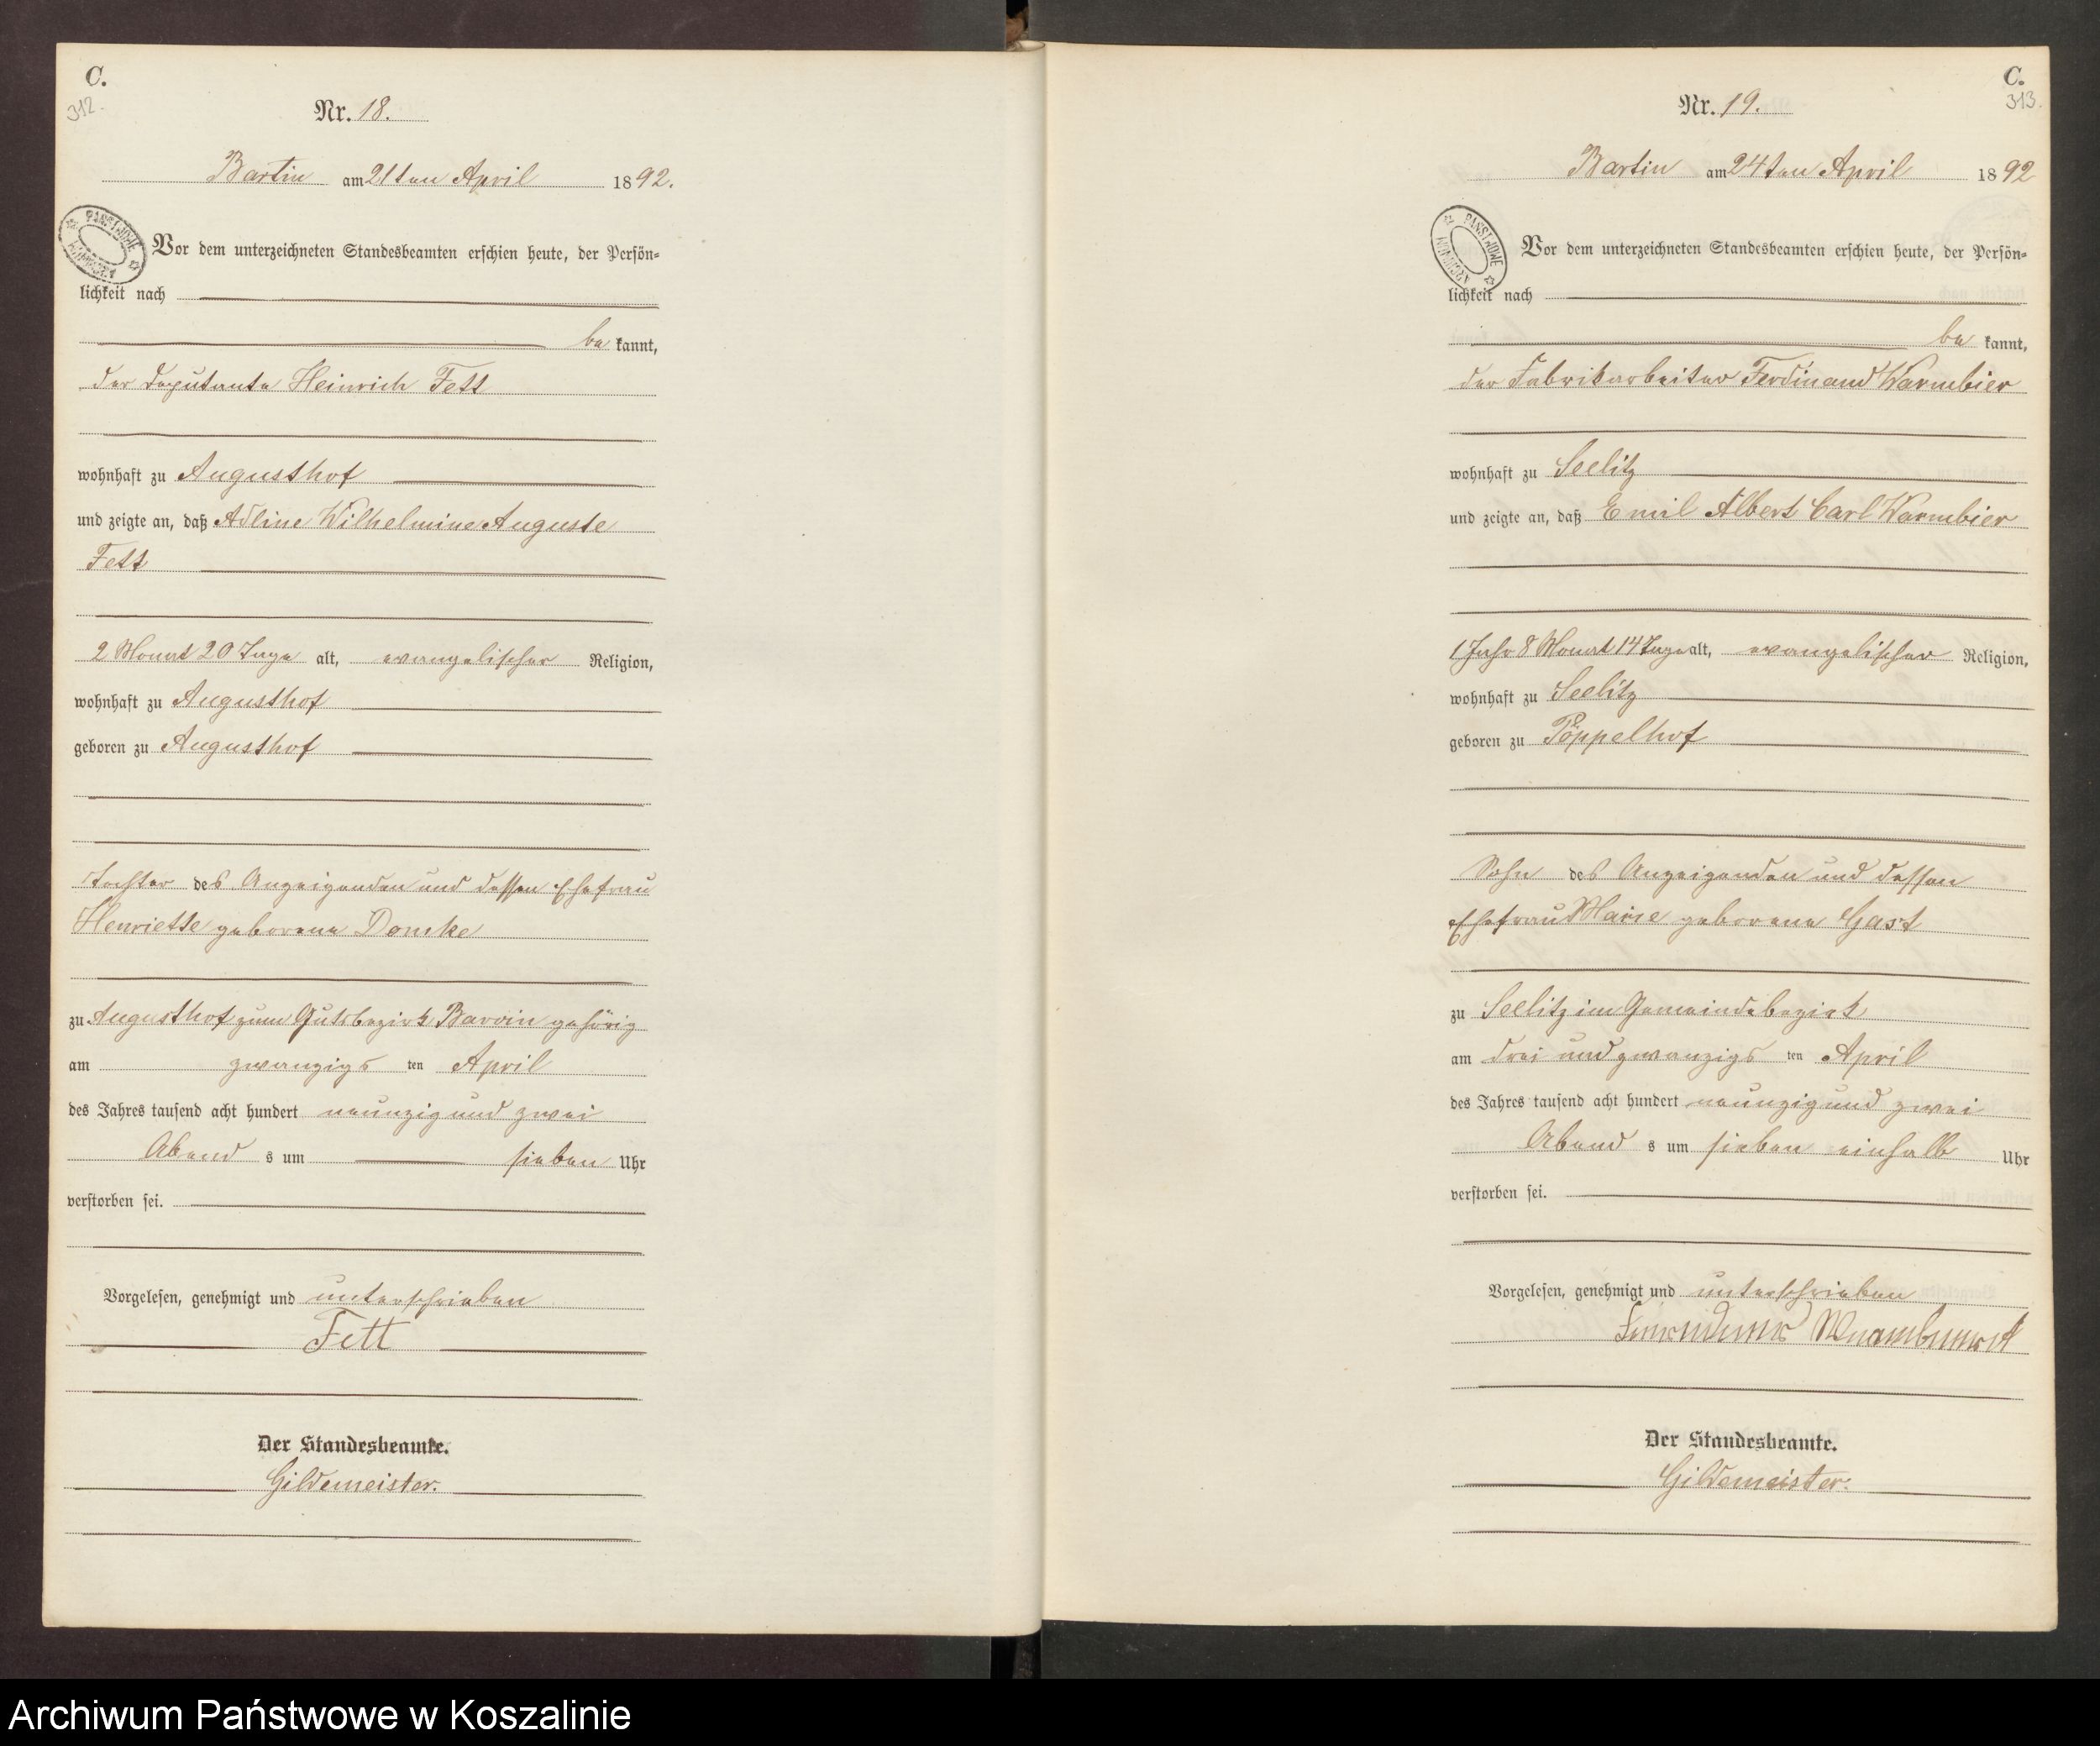 C.
312.
Nr. 18.
Bartin am 21ten April 1892.
Vor dem unterzeichneten Standesbeamten erschien heute, der Persön-
lichkeit nach
bekannt,
der Deputante Heinrich Fett
wohnhaft zu Augusthof
und zeigte an, daß Adline Wilhelmine Auguste
Fett
2 Monat 20 Tage alt, evangelischer Religion,
wohnhaft zu Augusthof
geboren zu Augusthof
Tochter des Anzeigenden und dessen Ehefrau
Henriette geborene Domke
zu Augusthof zum Gutsbezirk Barvin gehörig
am zwanzigsten April
des Jahres tausend acht hundert neunzig und zwei
Abends um sieben Uhr
verstorben sei.
Vorgelesen, genehmigt und unterschrieben
Fett
Der Standesbeamte.
Gildemeister.
C.
313.
Nr. 19.
Bartin am 24ten April 1892
Vor dem unterzeichneten Standesbeamten erschien heute, der Persön-
lichkeit nach
bekannt,
der Fabrikarbeiter Ferdinand Warmbier
wohnhaft zu Seelitz
und zeigte an, daß Emil Albert Carl Warmbier
1 Jahr 8 Monat 14 Tage alt, evangelischer Religion,
wohnhaft zu Seelitz
geboren zu Pöppelhof
Sohn des Anzeigenden und dessen
Ehefrau Marie geborene Gast
zu Seelitz im Gemeindebezirk
am drei und zwanzigsten April
des Jahres tausend acht hundert neunzig und zwei
Abends um sieben einhalb Uhr
verstorben sei.
Vorgelesen, genehmigt und unterschrieben
Der Standesbeamte.
Gildemeister.
Archiwum Państwowe w Koszalinie